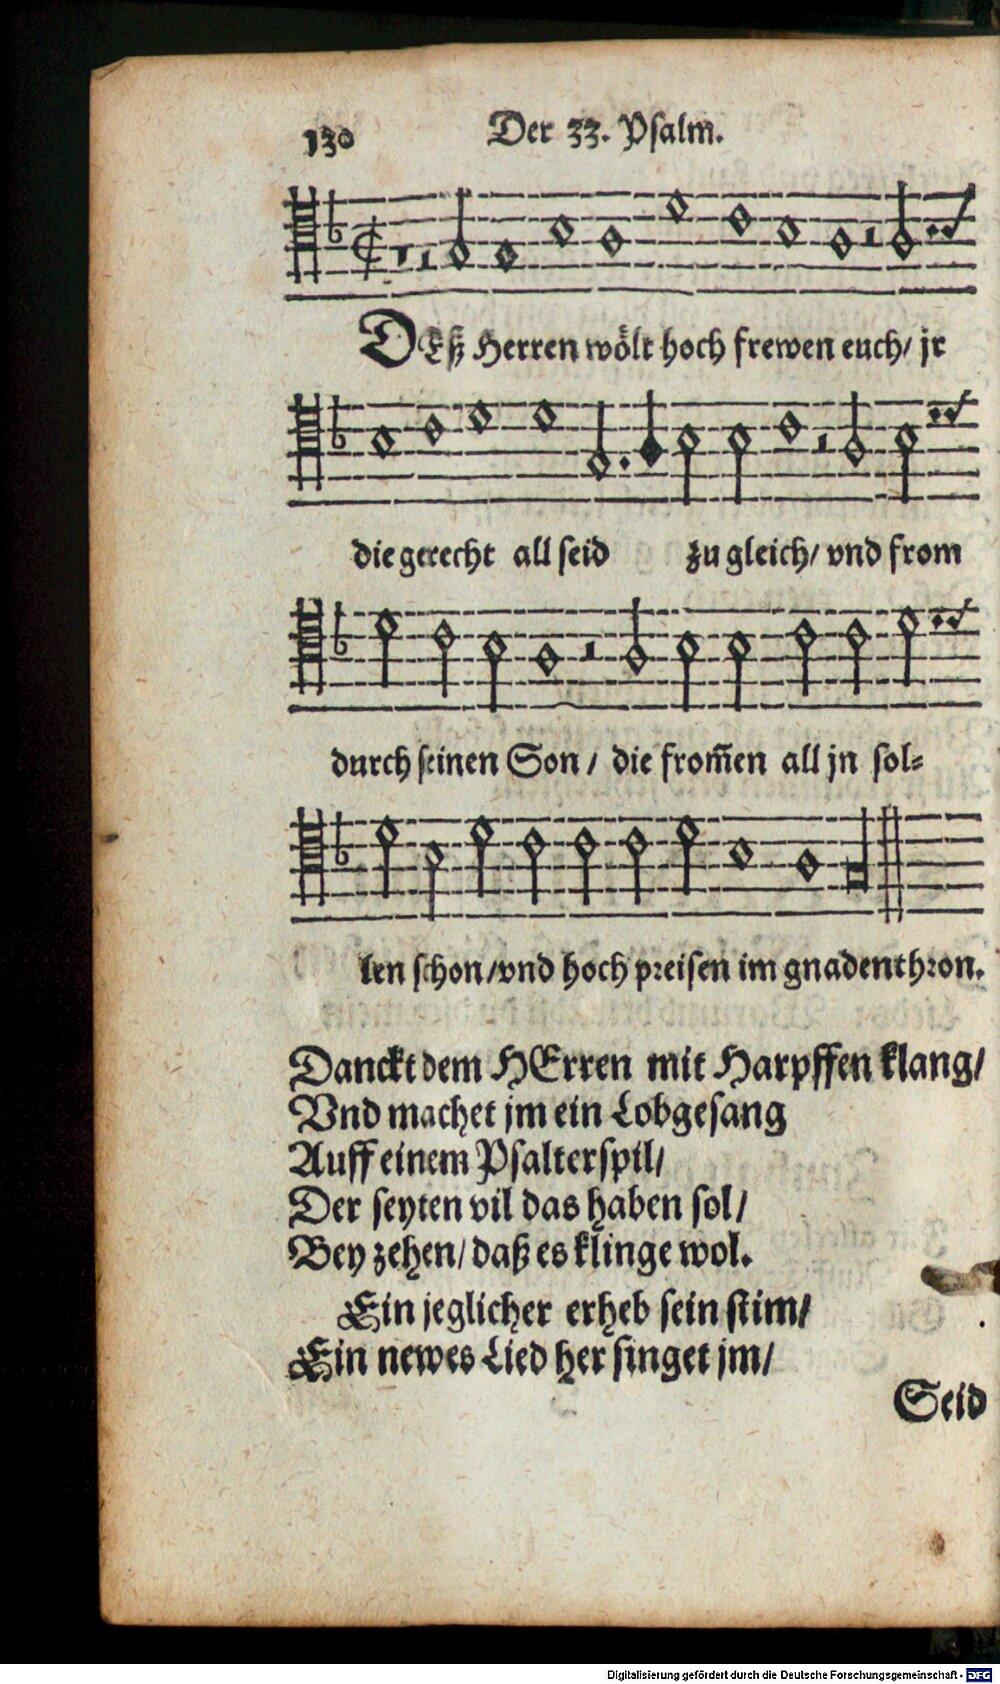 130 Der 33. Psalm.
DEß Herren wölt hoch frewen euch/ jr
die gerecht all seid zu gleich/ vnd from
durch seinen Son / die from̃en all jn sol⸗
len schon/vnd hoch preisen im gnadenthron.
Danckt dem HErren mit Harpffen klang/
Vnd machet jm ein Lobgesang
Auff einem Psalterspil/
Der seyten vil das haben sol/
Bey zehen/ daß es klinge wol.
Ein jeglicher erheb sein stim/
Ein newes Lied her singet jm/
Seid
Digitalisierung gefördert durch die Deutsche Forschungsgemeinschaft - DFG